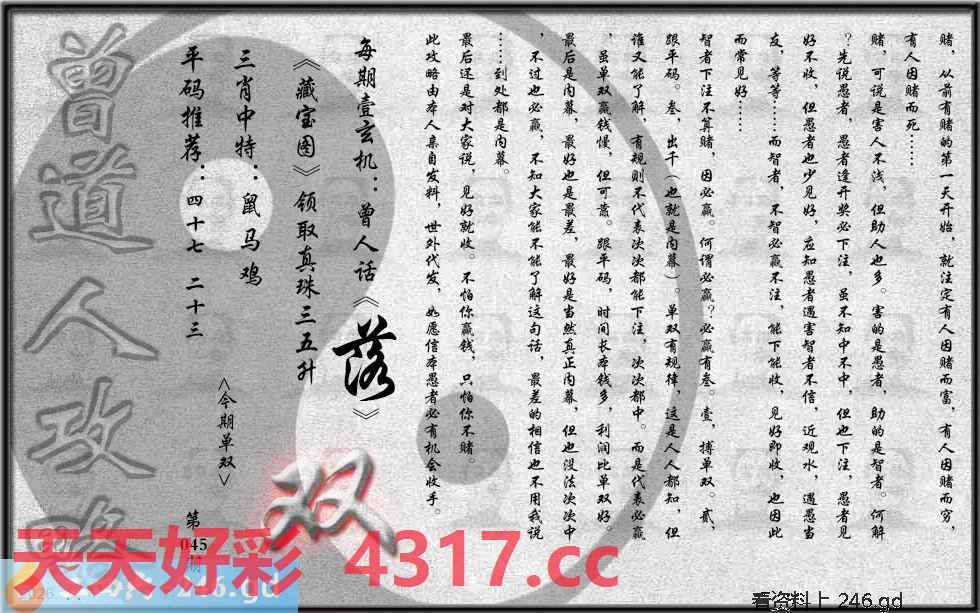 赌，从前有赌的第一天开始，就注定有人因赌而富，有人因赌而穷，
有人因赌而死……
赌，可说是害人不浅，但助人也多。害的是愚者，助的是智者。何解
？先说愚者，愚者逢开奖必下注，虽不知中不中，但也下注，愚者见
好不收，但愚者也少见好，应知愚者遇害智者不信，近观水，遇愚当
友，等等……而智者，不智必赢不注，能下能收，见好即收，也因此
而常见好……
智者下注不算赌，因必赢。何谓必赢？必赢有叁。壹，搏单双。贰，
跟平码。叁，出千（也就是内幕）。单双有规律，这是人人都知，但
谁又能了解，有规则不代表次次都能下注，次次都中。而是代表必赢
，虽单双赢钱慢，但可靠。跟平码，时间长本钱多，利润比单双好。
最后是内幕，最好也是最差，最好是当然真正内幕，但也没法次次中
，不过也必赢，不知大家能不能了解这句话，最差的相信也不用我说
……到处都是内幕。
最后还是对大家说，见好就收。不怕你赢钱，只怕你不赌。
此攻略由本人亲自发料，世外代发，如愿信本愚者必有机会收手。
每期壹玄机：曾人话《落》
《藏宝图》领取真珠三五升
三肖中特：鼠马鸡
平码推荐：四十七 二十三
<今期单双>
双
第
045
期
曾道人攻略
天天好彩 4317.cc
246.gd
2026
看资料上 246.gd